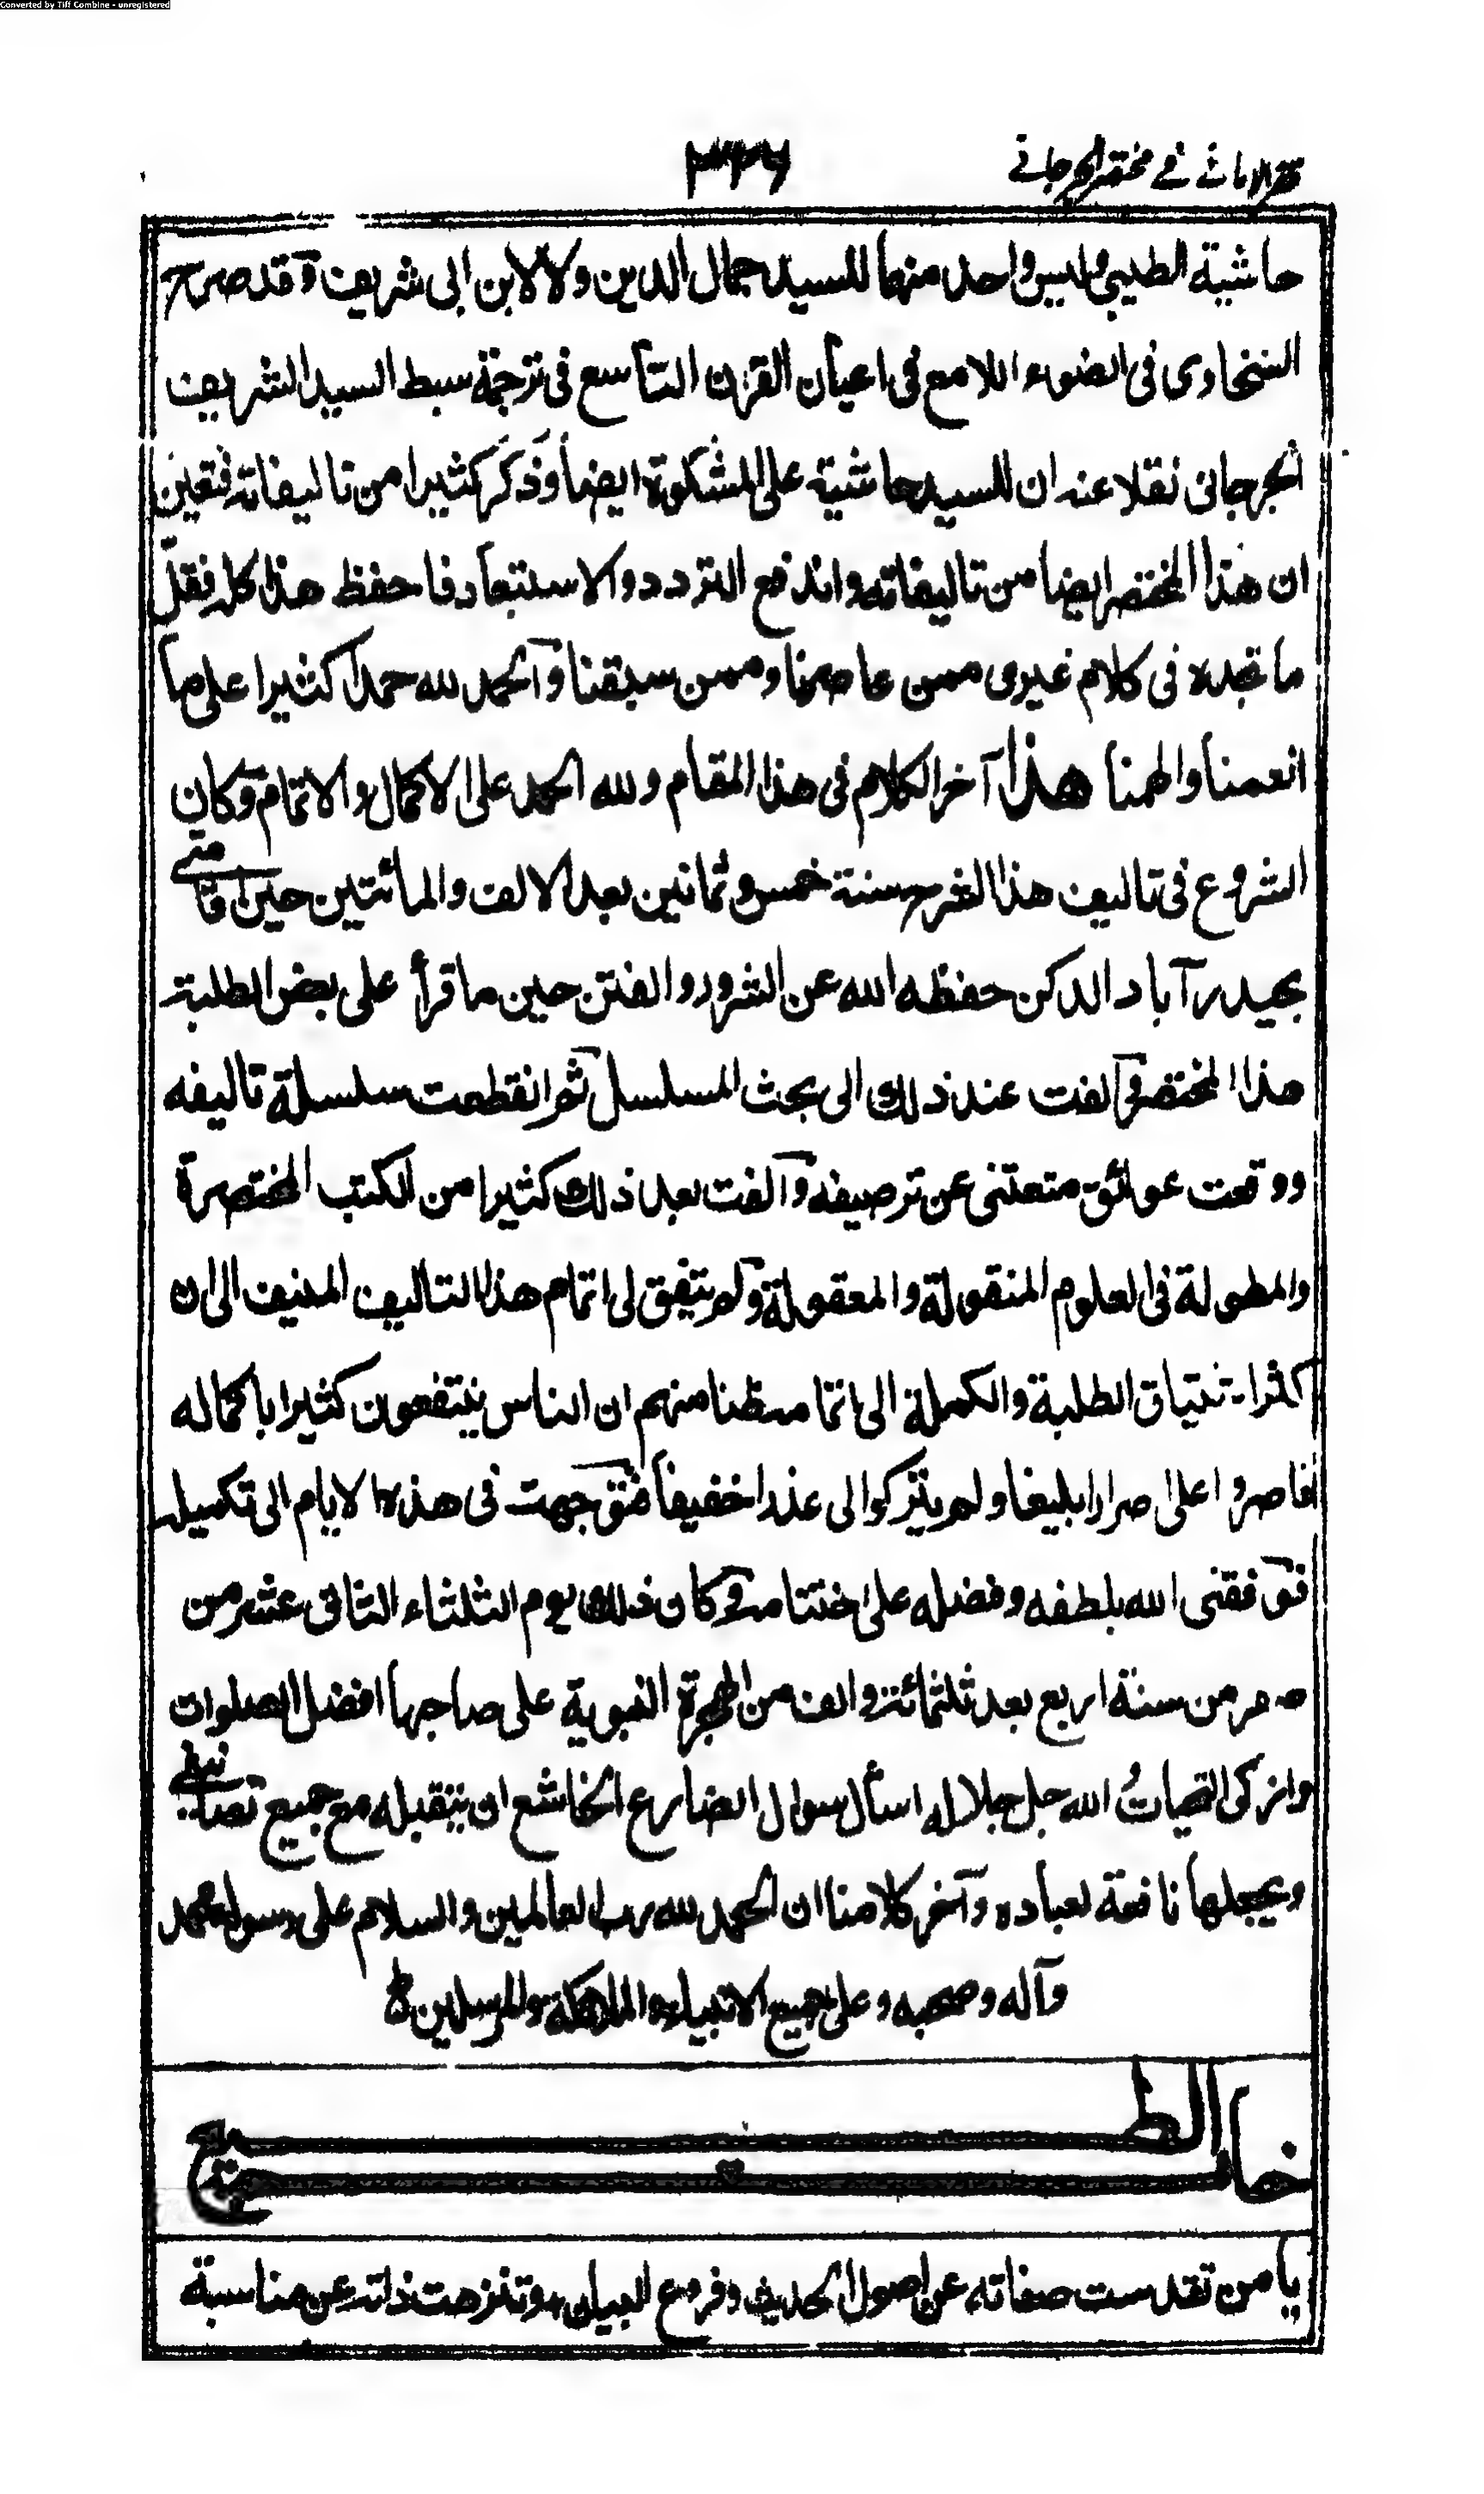 Converted by Tiff Combine - unregistered
ظفر الامانی فے مختصر الجرجانے ٣٣٦
حاشية الطيبي وليس واحد منهما للسيد جمال الدين ولا لابن ابى شريف وقد صرح
السخاوى فى الضوء اللامع فى اعيان القرن التاسع فى ترجمة سبط السيد الشريف
الجرجانى نقلا عنه ان للسيد حاشية على المشكوة ايضا وذكر كثيرا من تاليفاته فتعين
ان هذا المختصر ايضا من تاليفاته واندفع التردد والاستبعاد فاحفظ هذا كله فقل
ما تجده فى كلام غيرى ممن عاصرنا وممن سبقنا والحمد لله حمدا كثيرا على ما
انعمنا والهمنا هذا آخر الكلام فى هذا المقام ولله الحمد على الاكمال والاتمام وكان
الشروع فى تاليف هذا الشرح سنة خمس وثمانين بعد الالف والمائتين حين اقامتے
بحيدرآباد الدكن حفظه الله عن الشرور والفتن حين ما قرأ على بعض الطلبة
هذا المختصر فالفت عند ذلك الى بحث المسلسل ثم انقطعت سلسلة تاليفه
ووقعت عوائق منعتنى عن ترصيفه وآلفت بعد ذلك كثيرا من الكتب المختصرة
والمطولة فى العلوم المنقولة والمعقولة ولم يتفق لى اتمام هذا التاليف المنيف الى ان
كثر اشتياق الطلبة والكملة الى اتمامه ظنا منهم ان الناس ينتفعون كثيرا باكماله
فاصروا على اصرارا بليغا ولم يتركوا لى عذرا خفيفا فتوجهت فى هذه الايام الى تكميله
فوفقنى الله بلطفه وفضله على اختتامه وكان ذلك يوم الثلثاء الثانى عشر من
صفر من سنة اربع بعد ثلثمائة والف من الهجرة النبوية على صاحبها افضل الصلوات
وازكى التحيات الله جل جلاله اسأل سوال الضارع الخاشع ان يتقبله مع جميع تصانيفے
ويجعلها نافعة لعباده وآخر كلامنا ان الحمد لله رب العالمين والسلام على رسوله محمد
وآله وصحبه وعلى جميع الانبياء والملائكة والمرسلين
خاتمة الطبع
يا من تقدست صفاته عن اصول الحديث وفروع البيان وتنزهت ذاته عن مناسبة